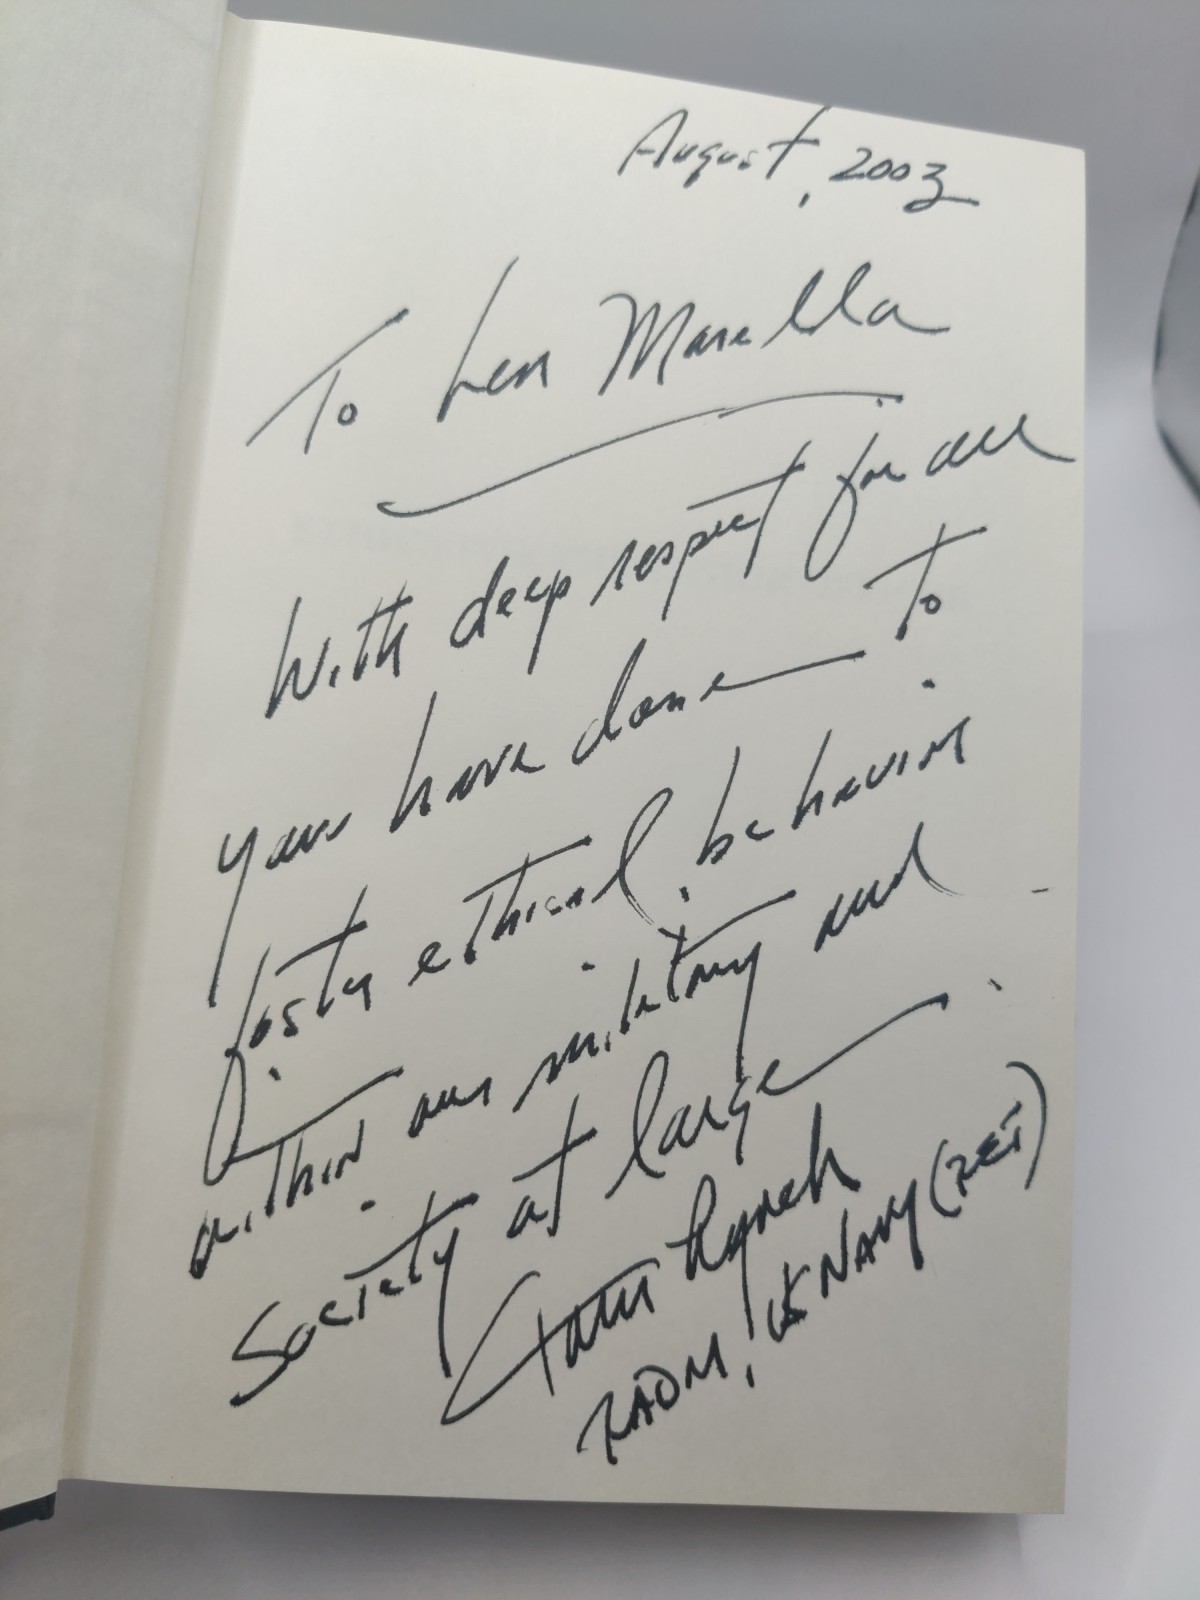 August, 2003
To Len Marella
With deep respect for all
you have done to
foster ethical behavior
within our military and
Society at large
Tom Lynch
RADM, US NAVY (RET)